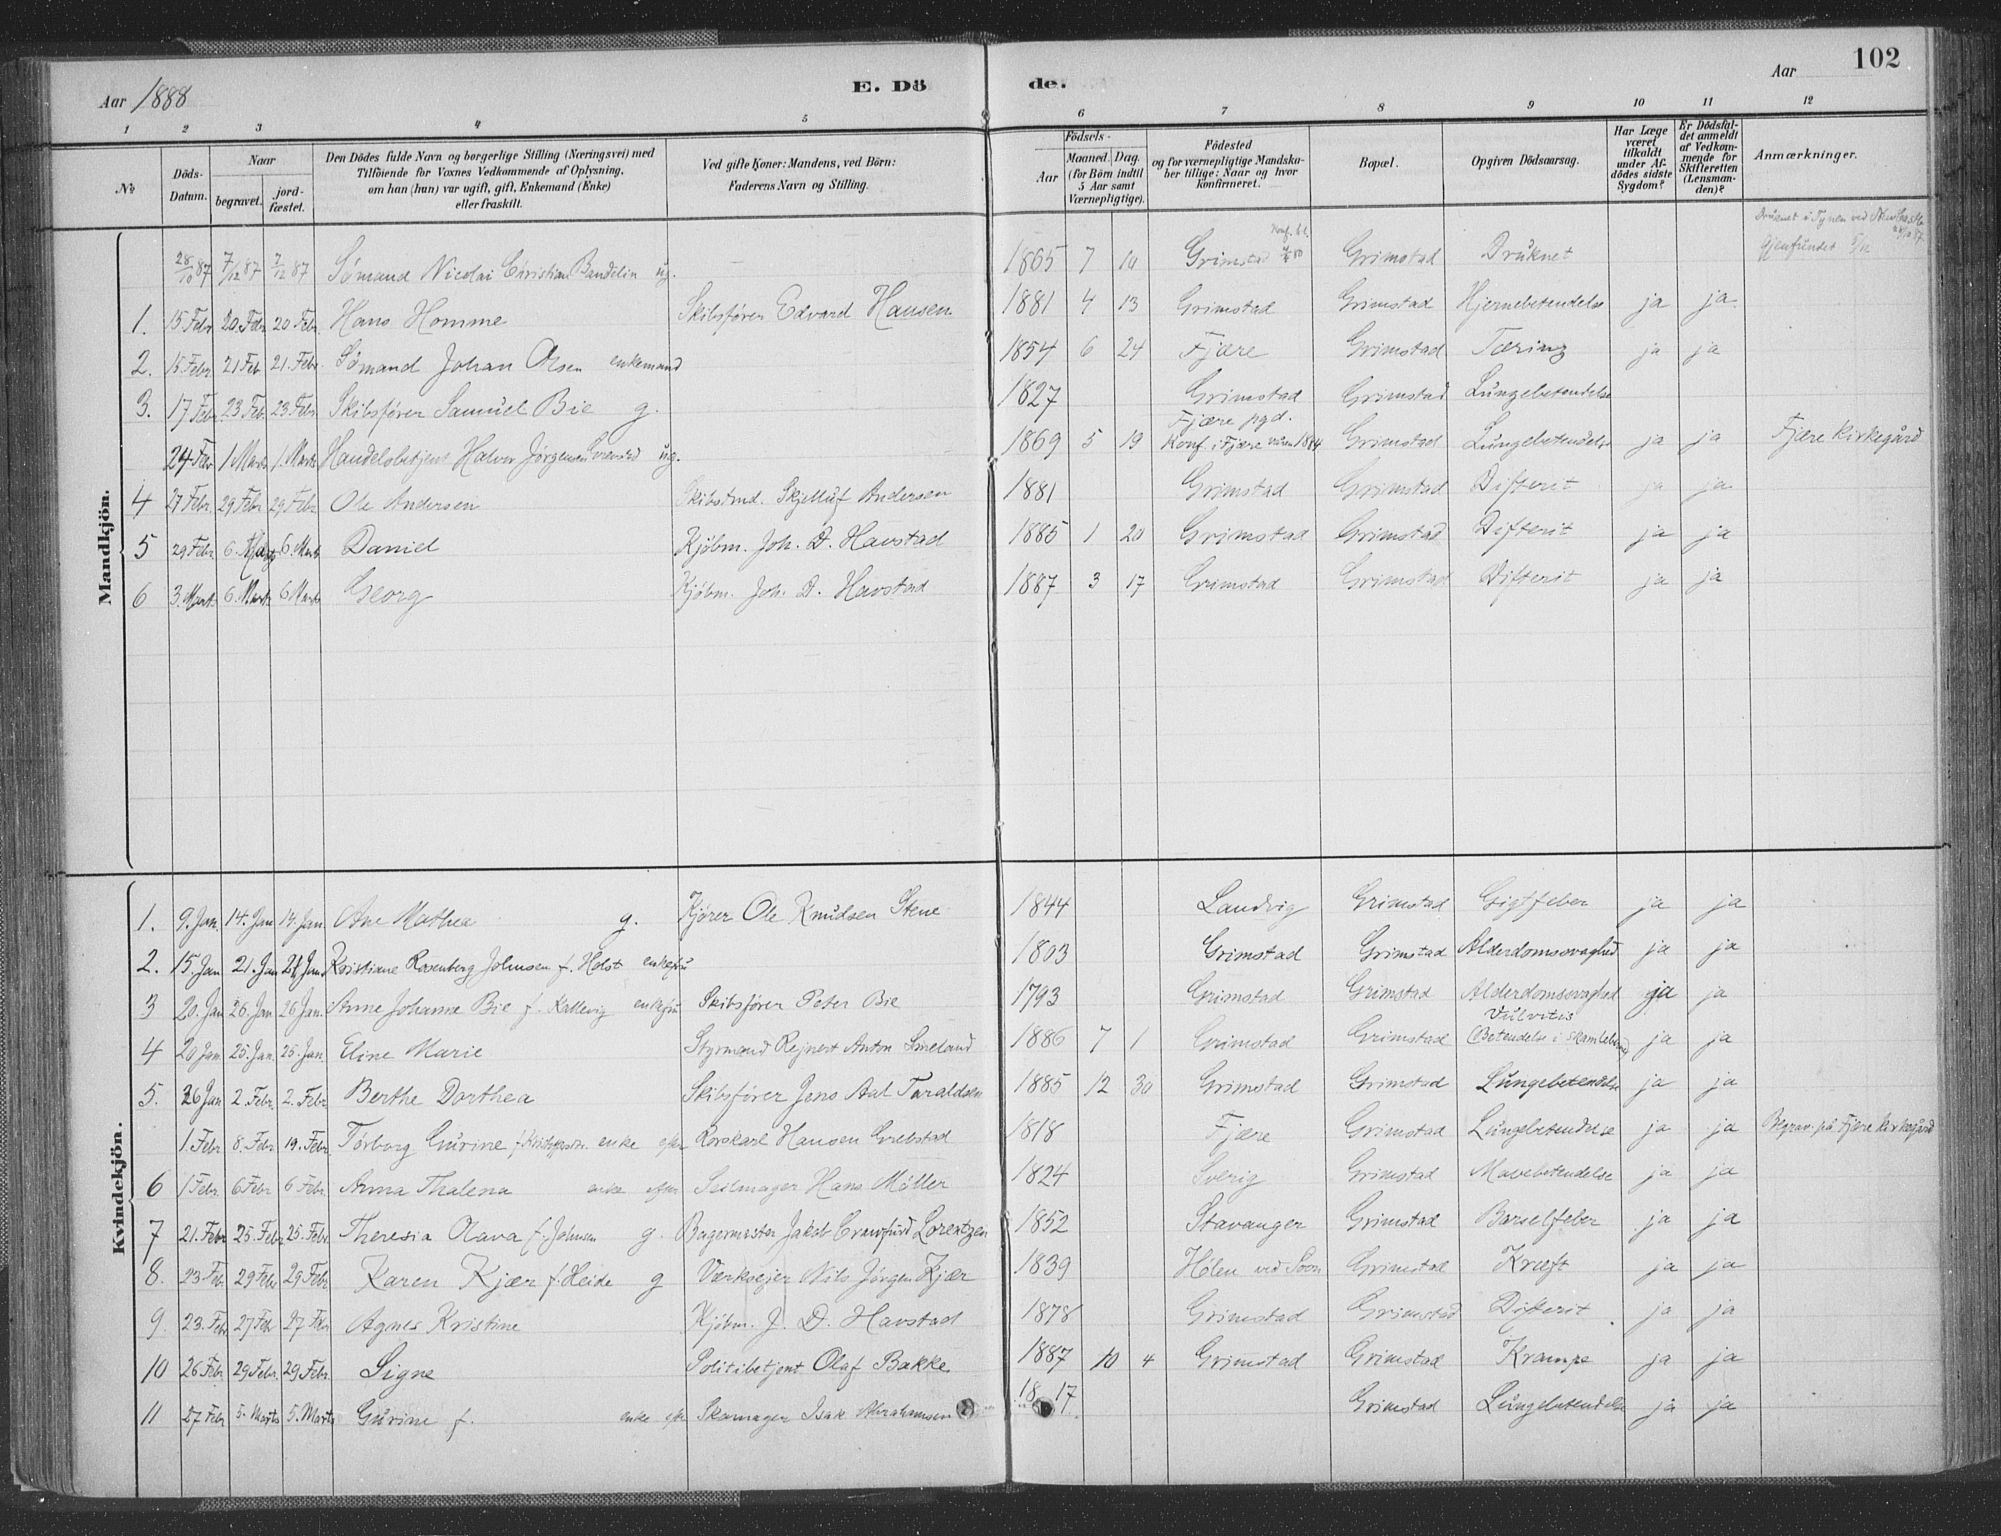 102
Aar 1888
E. Dö
de.
Aar
1 2 3 4 5 6 7 8 9 10 11 12
No
Döds-Datum.
Naar
begravet.
jord-fæstet.
Den Dödes fulde Navn og borgerlige Stilling (Næringsvei) med
Tilföiende for Voxnes Vedkommende af Oplysning,
om han (hun) var ugift, gift, Enkemand (Enke)
eller fraskilt.
Ved gifte Koner: Mandens, ved Börn:
Faderens Navn og Stilling.
Födsels-
Aar
Maaned. Dag.
(for Börn indtil
5 Aar samt
Værnepligtige).
Födested
og for værnepligtige Mandska-
ber tillige: Naar og hvor
konfirmeret.
Bopæl.
Opgiven Dödsaarsag.
Har Læge
været
tilkaldt
under Af-
dödes sidste
Sygdom?
Er Dödsfal-
det anmeldt
af Vedkom-
mende for
Skifteretten
(Lensman-
den)?
Anmærkninger.
Mandkjön.
28/10 87 7/12 87 7/12 87 Sømand Nicolai Christian Bandelin ug. — 1865 7 Grimstad Konf. Grimstad Druknet Druknet i ved Gjenfundet 5/12
1. 15 Febr 20. Febr 20 Febr. Hans Homme Skibsfører Edvard Hansen 1881 4 13 Grimstad Grimstad Hjernebetendelse ja ja
2. 15 Febr 21 Feb 21. Febr. Sømand Johan Olsen enkemand 1854 6 24 Fjære Grimstad Tæring ja ja
3. 17 Febr 23. Feb. 23. Febr. Skibsfører Samuel Bie g. 1827 Grimstad Grimstad Lungebetendelse
24 Febr 1 Marts 1. Marts Handelsbetjent Halvor Jørgensen ug. 1869 5 19 Fjære pgd. Konf. i Fjære 1884 Grimstad Lungebetendelse ja ja Fjære Kirkegård
4 27 Febr. 29 Febr 29 Febr. Ole Andersen Skibstmd. Skjelluf Andersen 1881 Grimstad Grimstad Difterit ja ja
5 29 Febr. 6. Marts 6. Marts Daniel Kjøbm. Joh. D. Havstad 1885 1 20 Grimstad Grimstad Difterit ja ja
6 3. Marts 6. Marts 6 Marts Georg Kjøbm. Joh. D. Havstad 1887 3 17 Grimstad Grimstad Difterit ja ja
Kvindekjön.
1. 9. Jan. 14. Jan 14. Jan. Ane Mathea g. Kjører Ole Knudsen Stene 1844 Landvig Grimstad Gigtfeber ja ja
2. 15. Jan 21. Jan 21. Jan Kristiane Rosenberg Johnsen f. Holst enkefru 1803 Grimstad Grimstad Alderdomssvaghed ja ja
3 20. Jan 26. Jan 26 Jan. Anne Johanne Bie f. Kallevig enkefru Skibsfører Peter Bie 1793 Grimstad Grimstad Alderdomssvaghed ja ja
4 20 Jan 25. Jan. 25. Jan Eline Marie Styrmand Rejnert Anton Smeland 1886 7 1 Grimstad Grimstad Vulvitis (Betendelse i ja ja
5. 26 Jan 2. Febr. 2. Febr Berthe Dorthea Skibsfører Jens Aal Taraldsen 1885 12 30 Grimstad Grimstad Lungebetendelse ja ja
1. Febr 8. Febr 19. Febr Torborg Gurine enke efter Korskarl Hansen Grebstad 1818 Fjære Grimstad Lungebetendelse ja ja Begrav. på Fjære Kirkegård
6 1 Febr. 6 Febr 6 Febr. Anna Thalena enke efter Seilmager Hans Møller 1824 Sverig Grimstad Mavebetendelse ja ja
7 21. Febr 25. Febr 25. Febr. Theresia Olava f. Johnsen g. Bagermester Jakob Crawfurd Lorentzen 1852 Stavanger Grimstad Barselfeber ja ja
8. 23 Febr. 29 Febr 29 Febr. Karen Kjær f. Heide g Værksejer Nils Jørgen Kjær 1839 Hølen ved Soon Grimstad Kræft ja ja
9. 23. Febr. 27 Feb 27 Febr Agnes Kristine Kjøbm. J. D. Havstad 1878 Grimstad Grimstad Difterit ja ja
10 26 Febr 29 Febr. 29 Febr. Signe Politibetjent Olaf Bakke 1887 10 4 Grimstad Grimstad Krampe ja ja
11 27 Febr 5. Marts 5. Marts Gurine f. enke efter Skomager Isak Abrahamsen 1817 Grimstad Lungebetendelse ja ja